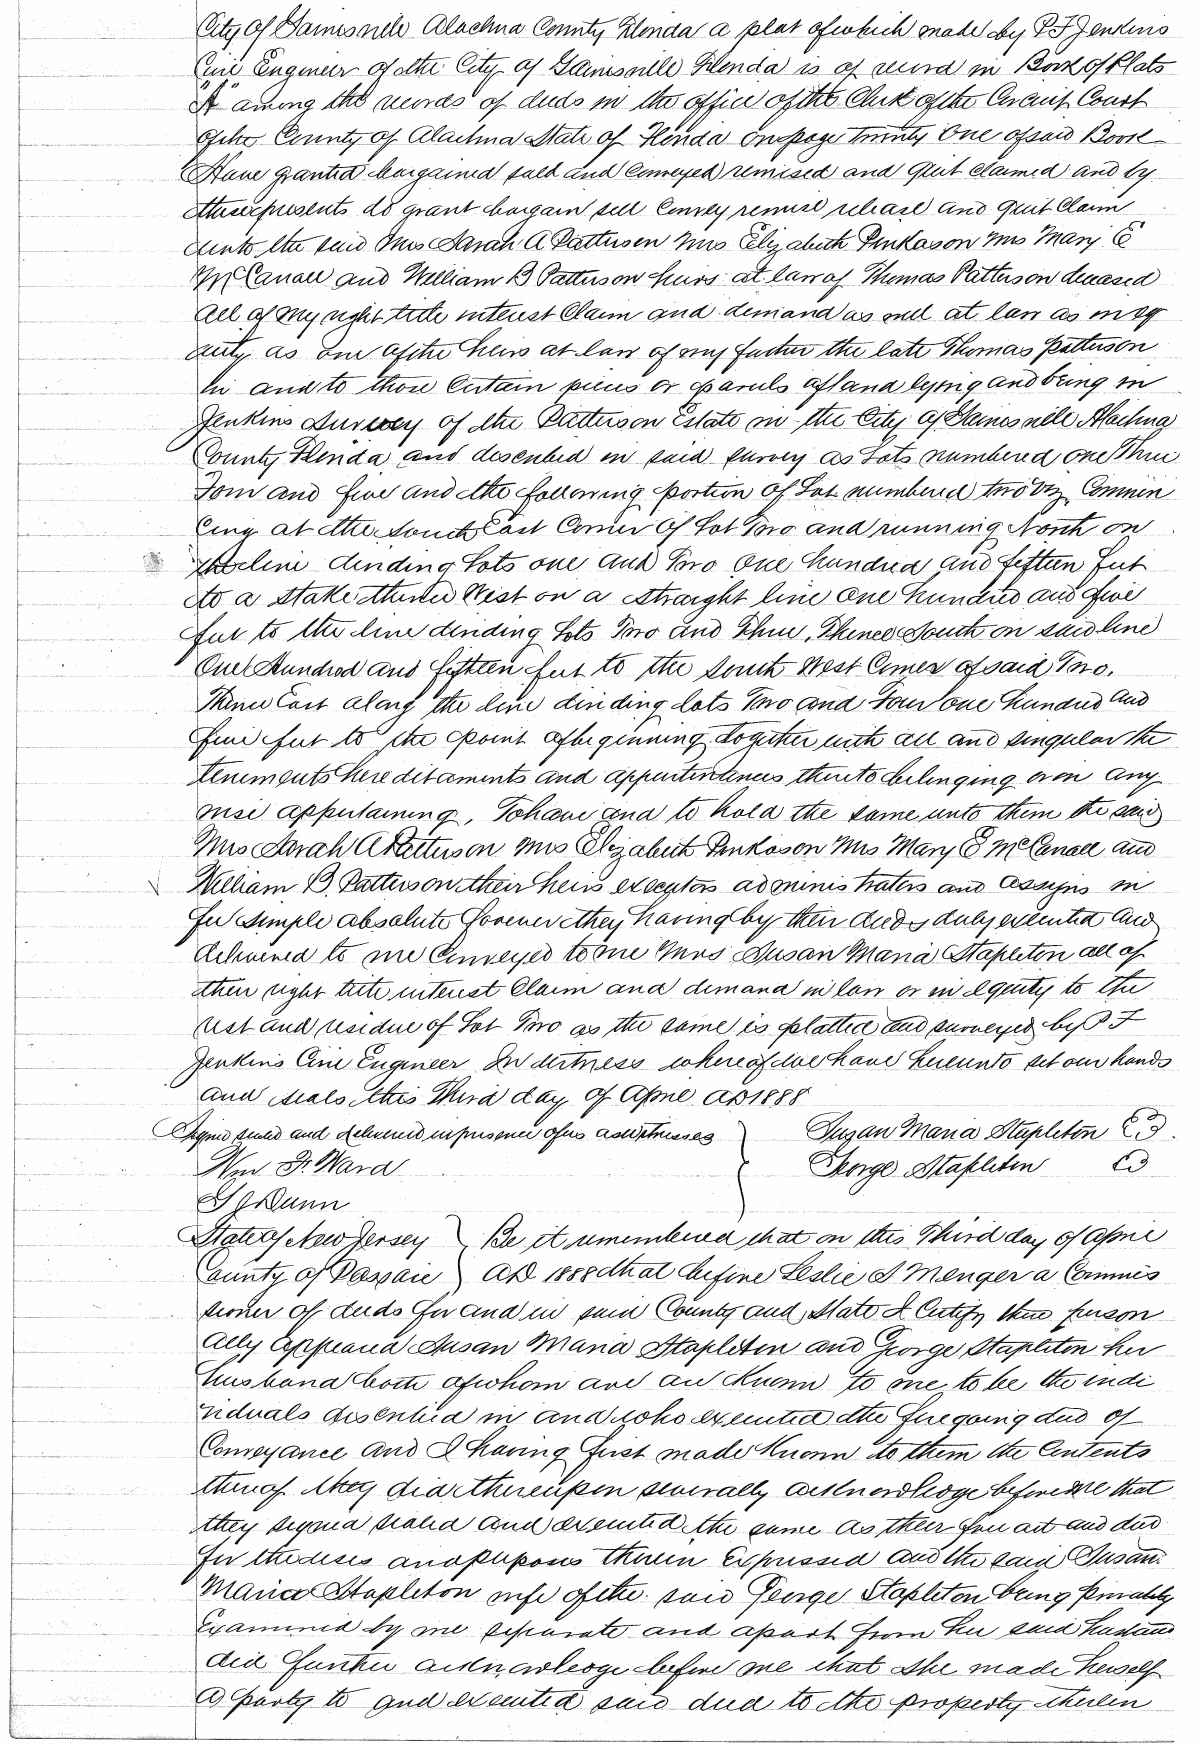 City of Gainesville Alachua County Florida a plat of which made by P F Jenkins
Civil Engineer of the City of Gainesville Florida is of record in Book of Plats
"A" among the records of deeds in the office of the Clerk of the Circuit Court
of the County of Alachua State of Florida on page twenty one of said Book
Have granted bargained sold and conveyed remised and quit claimed and by
these presents do grant bargain sell convey remise release and quit claim
unto the said Mrs Sarah A Patterson Mrs Elizabeth Pinkoson Mrs Mary E
McCanall and William B Patterson heirs at law of Thomas Patterson deceased
all of my right title interest claim and demand as well at law as in eq
uity as one of the heirs at law of my father the late Thomas Patterson
in and to those certain pieces or parcels of land lying and being in
Jenkins Survey of the Patterson Estate in the City of Gainesville Alachua
County Florida and described in said survey as Lots numbered one Three
Four and five and the following portion of Lot numbered two viz Commen
cing at the South East Corner of Lot Two and running North on
the line dividing Lots one and Two One hundred and fifteen feet
to a stake thence West on a straight line One hundred and five
feet to the line dividing Lots Two and Three, Thence South on said line
One Hundred and fifteen feet to the South West Corner of said Two.
Thence East along the line dividing lots Two and Four one hundred and
five feet to the point of beginning, Together with all and singular the
tenements hereditaments and appurtenances thereto belonging or in any
wise appertaining, To have and to hold the same unto them the said
Mrs Sarah A Patterson Mrs Elizabeth Pinkoson Mrs Mary E McCanall and
William B. Patterson their heirs executors administrators and assigns in
fee simple absolute forever they having by their deeds duly executed and
delivered to me conveyed to me Mrs Susan Maria Stapleton all of
their right title interest claim and demand in law or in equity to the
rest and residue of Lot Two as the same is platted and surveyed by P F
Jenkins Civil Engineer In witness whereof we have hereunto set our hands
and seals this Third day of April AD 1888
Signed sealed and delivered in presence of us as witnesses Susan Maria Stapleton
Wm F. Ward George Stapleton
Dunn
State of New Jersey Be it remembered that on this Third day of April
County of Passaic AD 1888 that before Leslie S Menger a Commis
sioner of deeds for and in said County and State I Certify there person
ally appeared Susan Maria Stapleton and George Stapleton her
husband both of whom are all known to me to be the indi
viduals described in and who executed the foregoing deed of
Conveyance and I having first made known to them the contents
thereof they did thereupon severally acknowledge before me that
they signed sealed and executed the same as their free act and deed
for the uses and purposes therein expressed and the said Susan
Maria Stapleton wife of the said George Stapleton being privately
examined by me separate and apart from her said husband
did further acknowledge before me that she made herself
a party to and executed said deed to the property therein